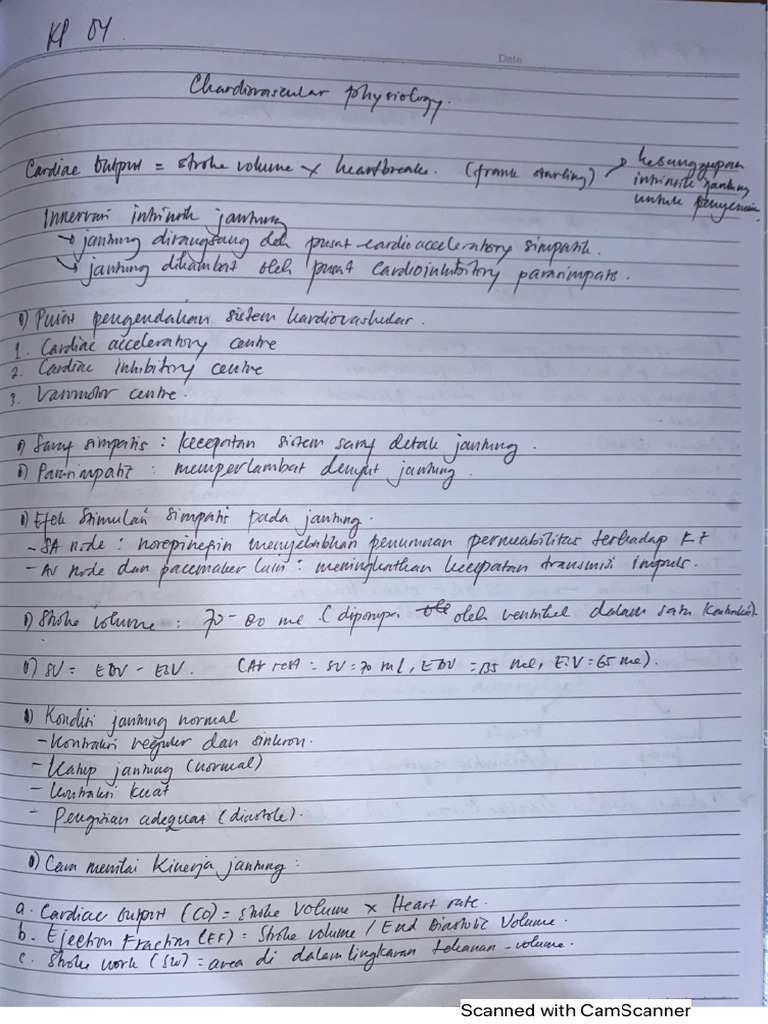 KP 04
Date
Chardiovascular physiology.
Cardiac Output = stroke volume x heartbreake. (frank starling) → kesanggupan
intrinsik jantung
untuk penyesuaian
Innervasi intrinsik jantung
→ jantung dirangsang oleh pusat cardioacceleratory simpatik.
→ jantung dihambat oleh pusat Cardioinhibitory parasimpatis.
Pusat pengendalian sistem kardiovaskular.
1. Cardiac acceleratory centre
2. Cardiac inhibitory centre
3. Vasomotor centre.
Saraf simpatis : kecepatan sistem saraf detak jantung.
Parasimpatis : memperlambat denyut jantung.
Efek Stimulasi simpatis pada jantung.
- SA node : norepinefrin menyebabkan penurunan permeabilitas terhadap K+
- AV node dan pacemaker lain : meningkatkan kecepatan transmisi impuls.
Stroke volume : 70 - 80 ml. (dipompa oleh ventrikel dalam satu kontraksi).
SV = EDV - ESV. (At rest = SV = 70 ml, EDV = 135 ml, ESV = 65 ml).
Kondisi jantung normal
- Kontraksi reguler dan sinkron.
- Katup jantung (normal)
- Kontraksi kuat
- Pengisian adequat (diastole).
Cara menilai Kinerja jantung :
a. Cardiac Output (CO) = stroke Volume x Heart rate.
b. Ejection Fraction (EF) = Stroke volume / End Diastolic Volume.
c. Stroke work (SW) = area di dalam lingkaran tekanan - volume.
Scanned with CamScanner